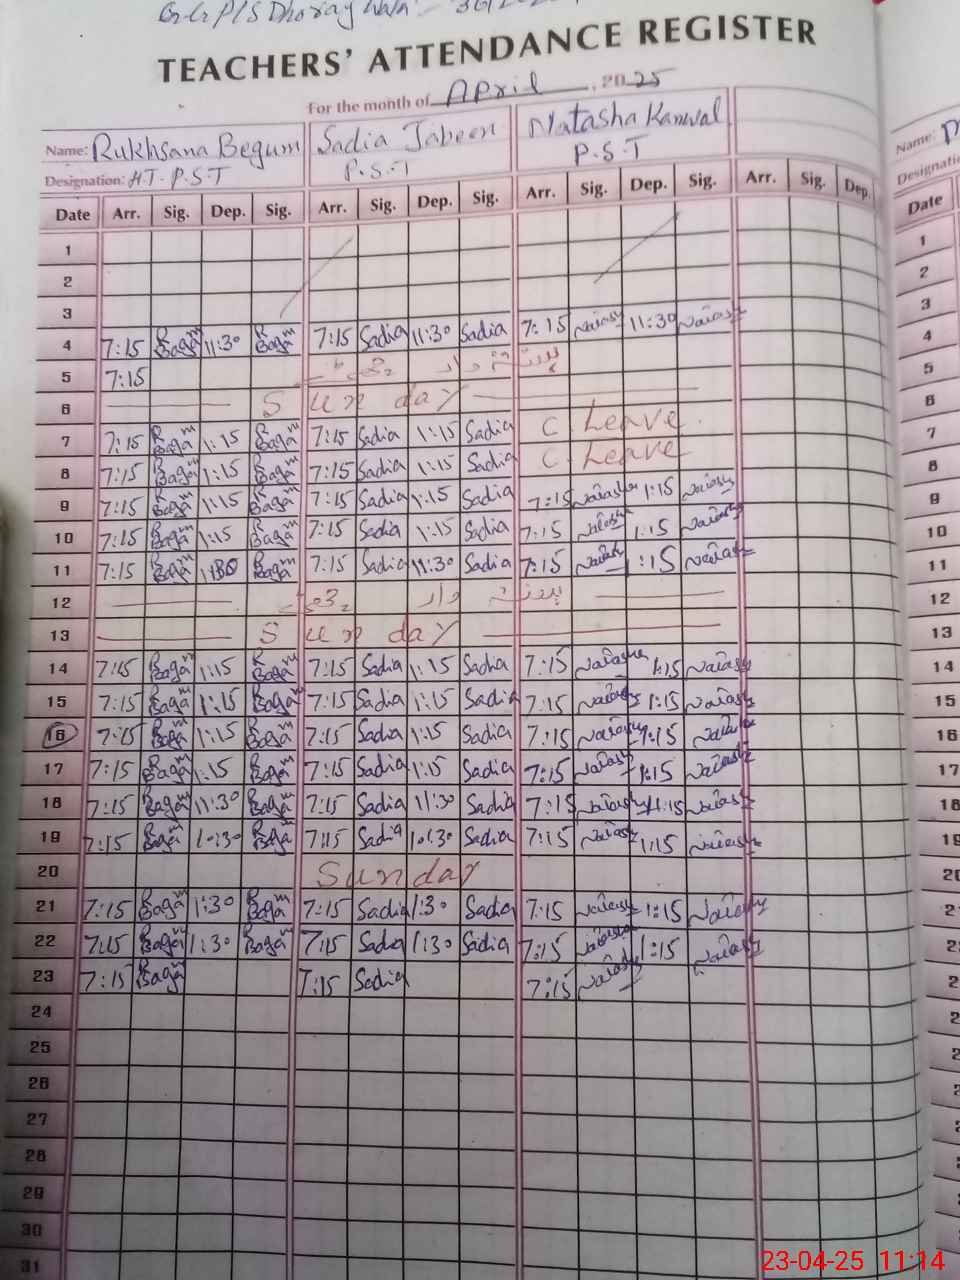 TEACHERS' ATTENDANCE REGISTER
For the month of April, 2025
Name: Rukhsana Begum Sadia Jabeen Natasha Kanwal Name:
Designation: HT-P.S.T P.S.T P.S.T
Date Arr. Sig. Dep. Sig. Arr. Sig. Dep. Sig. Arr. Sig. Dep. Sig. Arr. Sig. Dep. Date
1 1
2 2
3 3
4 7:15 R Bagam 11:30 R Bagam 7:15 Sadia 11:30 Sadia 7:15 11:30 4
5 7:15 5
6 Sunday 6
7 7:15 R Bagam 1:15 R Bagam 7:15 Sadia 1:15 Sadia C. Leave. 7
8 7:15 R Bagam 1:15 R Bagam 7:15 Sadia 1:15 Sadia C. Leave 8
9 7:15 R Bagam 1:15 R Bagam 7:15 Sadia 1:15 Sadia 7:15 1:15 9
10 7:15 R Bagam 1:15 R Bagam 7:15 Sadia 1:15 Sadia 7:15 1:15 10
11 7:15 R Bagam R Bagam 7:15 Sadia 11:30 Sadia 7:15 1:15 11
12 12
13 Sunday 13
14 7:15 R Bagam 1:15 R Bagam 7:15 Sadia 1:15 Sadia 7:15 1:15 14
15 7:15 R Bagam 1:15 R Bagam 7:15 Sadia 1:15 Sadia 7:15 1:15 15
16 7:15 R Bagam 1:15 R Bagam 7:15 Sadia 1:15 Sadia 7:15 1:15 16
17 7:15 R Bagam 1:15 R Bagam 7:15 Sadia 1:15 Sadia 7:15 1:15 17
18 7:15 R Bagam 11:30 R Bagam 7:15 Sadia 11:30 Sadia 7:15 18
19 7:15 R Bagam 10:30 R Bagam 7:15 Sadia 10:30 Sadia 7:15 1:15 19
20 Sunday
21 7:15 R Bagam 1:30 R Bagam 7:15 Sadia 1:30 Sadia 7:15 1:15
22 7:15 R Bagam 1:30 R Bagam 7:15 Sadia 1:30 Sadia 7:15 1:15
23 7:15 R Bagam 7:15 Sadia 7:15
24
25
26
27
28
29
30
31
23-04-25 11:14